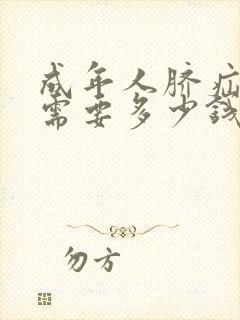 成年人脐疝
需要多少钱
勿方